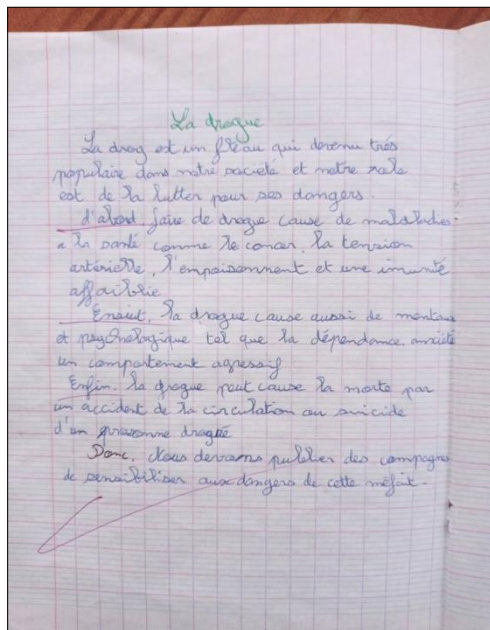 La drogue
La drog est un fléau qui devenu très
populaire dans notre société et notre role
est de la lutter pour ses dangers.
d'abord faire de drogue cause de maladudies
a la santé comme le cancer, la tension
artérielle, l'empoisonnent et une imunité
affaiblie
Ensuit, la drogue cause aussi de mentaux
et psychologique tel que la dépendance anxiété
un comportement agressif
Enfin, la drogue peut cause la morte par
un accident de la circulation ou suicide
d'un presonne drogué
Donc, Nous devrons publier des compagne
de sensibiliser aux dangers de cette méfait.